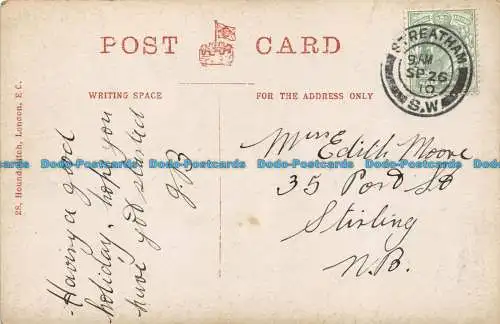 POST CARD
WRITING SPACE
FOR THE ADDRESS ONLY
STREATHAM
9 AM
SP 26
10
S.W
28, Houndsditch, London, E.C.
Having a good
holiday. hope you
have
started
J.B
Miss Edith Moore
35 Port St
Stirling
N.B.
Dodo-Postcards Dodo-Postcards Dodo-Postcards Dodo-Postcards Dodo-Postcards Dodo-Postcards